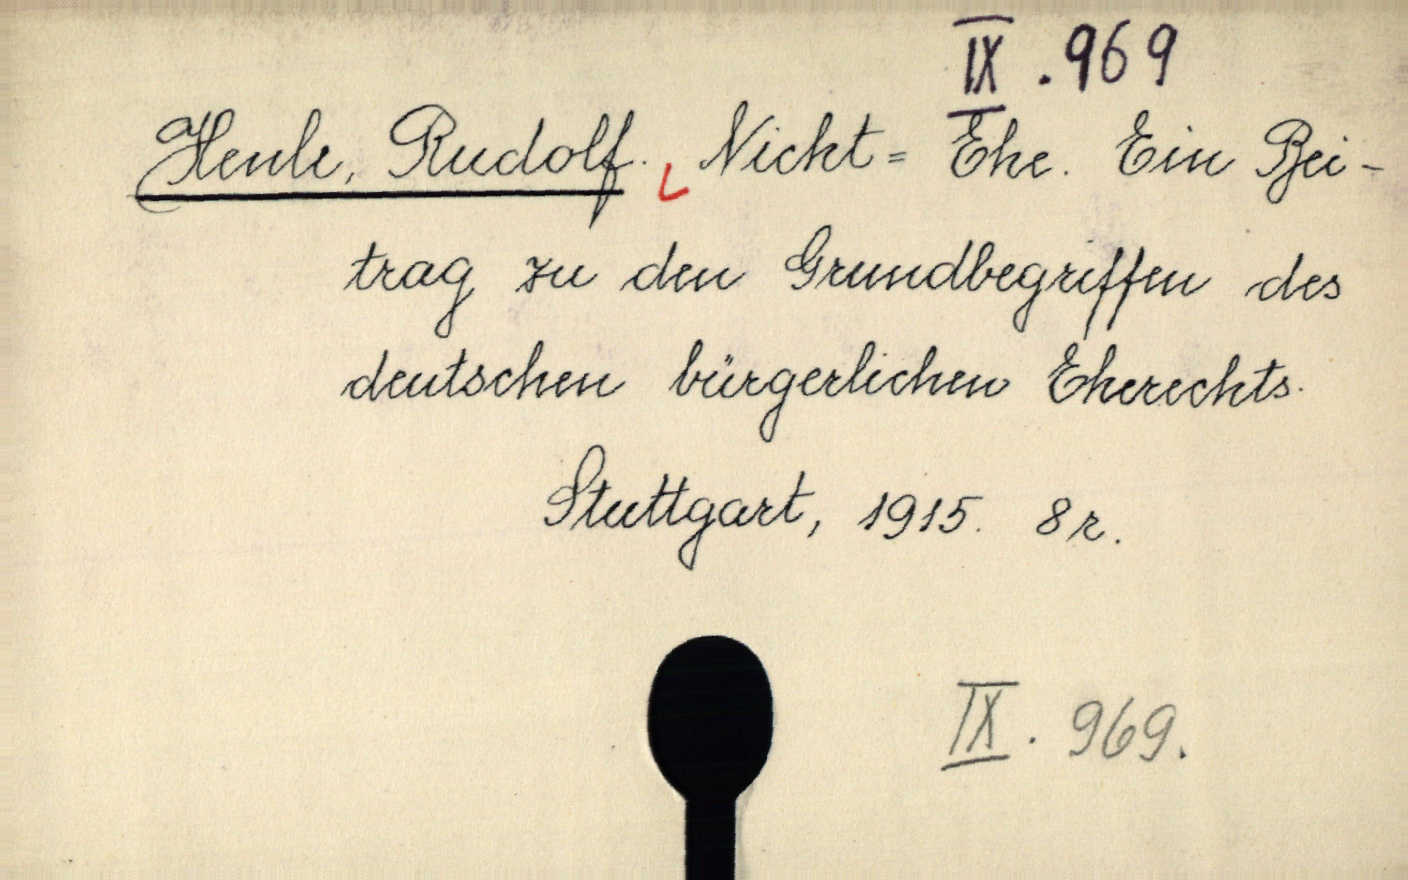 IX . 969
Henle, Rudolf. Nicht= Ehe. Ein Bei-
trag zu den Grundbegriffen des
deutschen bürgerlichen Eherechts.
Stuttgart, 1915. 8r.
IX . 969.